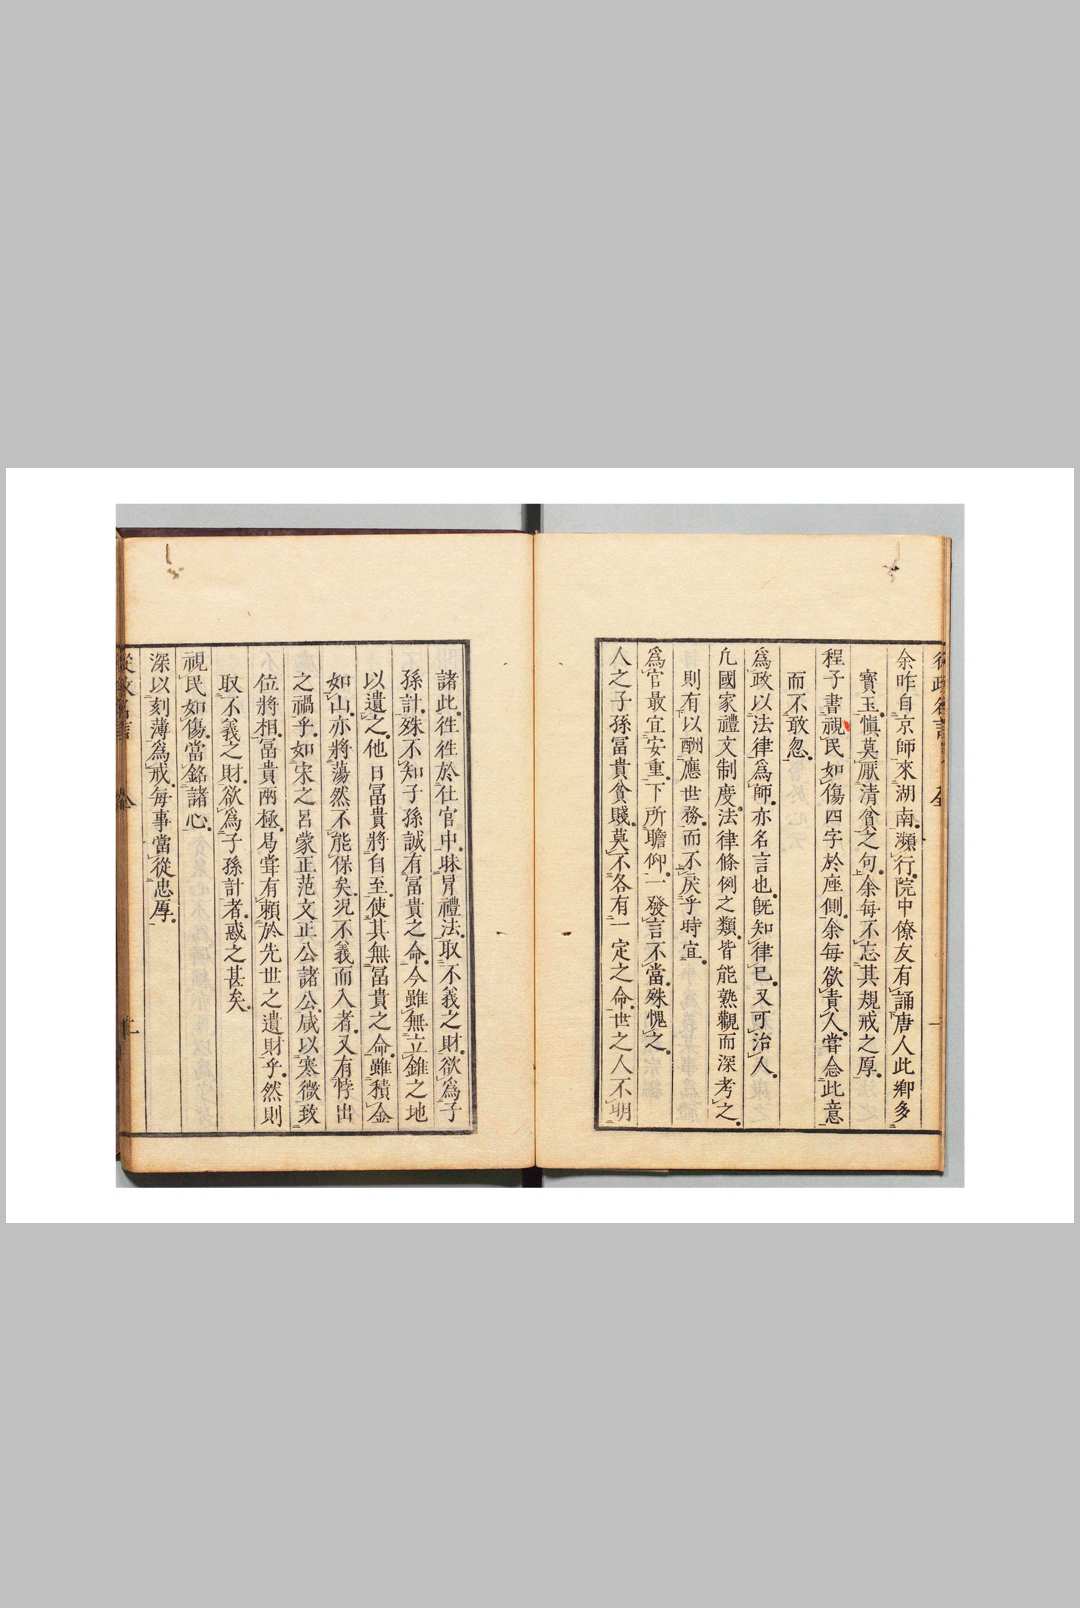 余昨自京師來湖南。瀕行。院中僚友有誦唐人此鄉多
寶玉。愼莫厭清貧之句。余每不忘其規戒之厚。
程子書視民如傷四字於座側。余每欲責人。嘗念此意
而不敢忽。
爲政以法律爲師。亦名言也。旣知律已。又可治人。
凡國家禮文制度。法律條例之類。皆能熟觀而深考之。
則有以酬應世務。而不戾乎時宜。
爲官最宜安重。下所瞻仰。一發言不當。殊愧之。
人之子孫冨貴貧賤。莫不各有一定之命。世之人不明
諸此。徃徃於仕官中。昧冐禮法。取不義之財。欲爲子
孫計。殊不知子孫誠有冨貴之命。今雖無立錐之地
以遺之。他日冨貴將自至。使其無冨貴之命。雖積金
如山。亦將蕩然不能保矣。况不義而入者。又有悖出
之禍乎。如宋之呂蒙正范文正公諸公。咸以寒微致
位將相。冨貴兩極。曷甞有賴於先世之遺財乎。然則
取不義之財。欲爲子孫計者。惑之甚矣。
視民如傷。當銘諸心。
深以刻薄爲戒。每事當從忠厚。